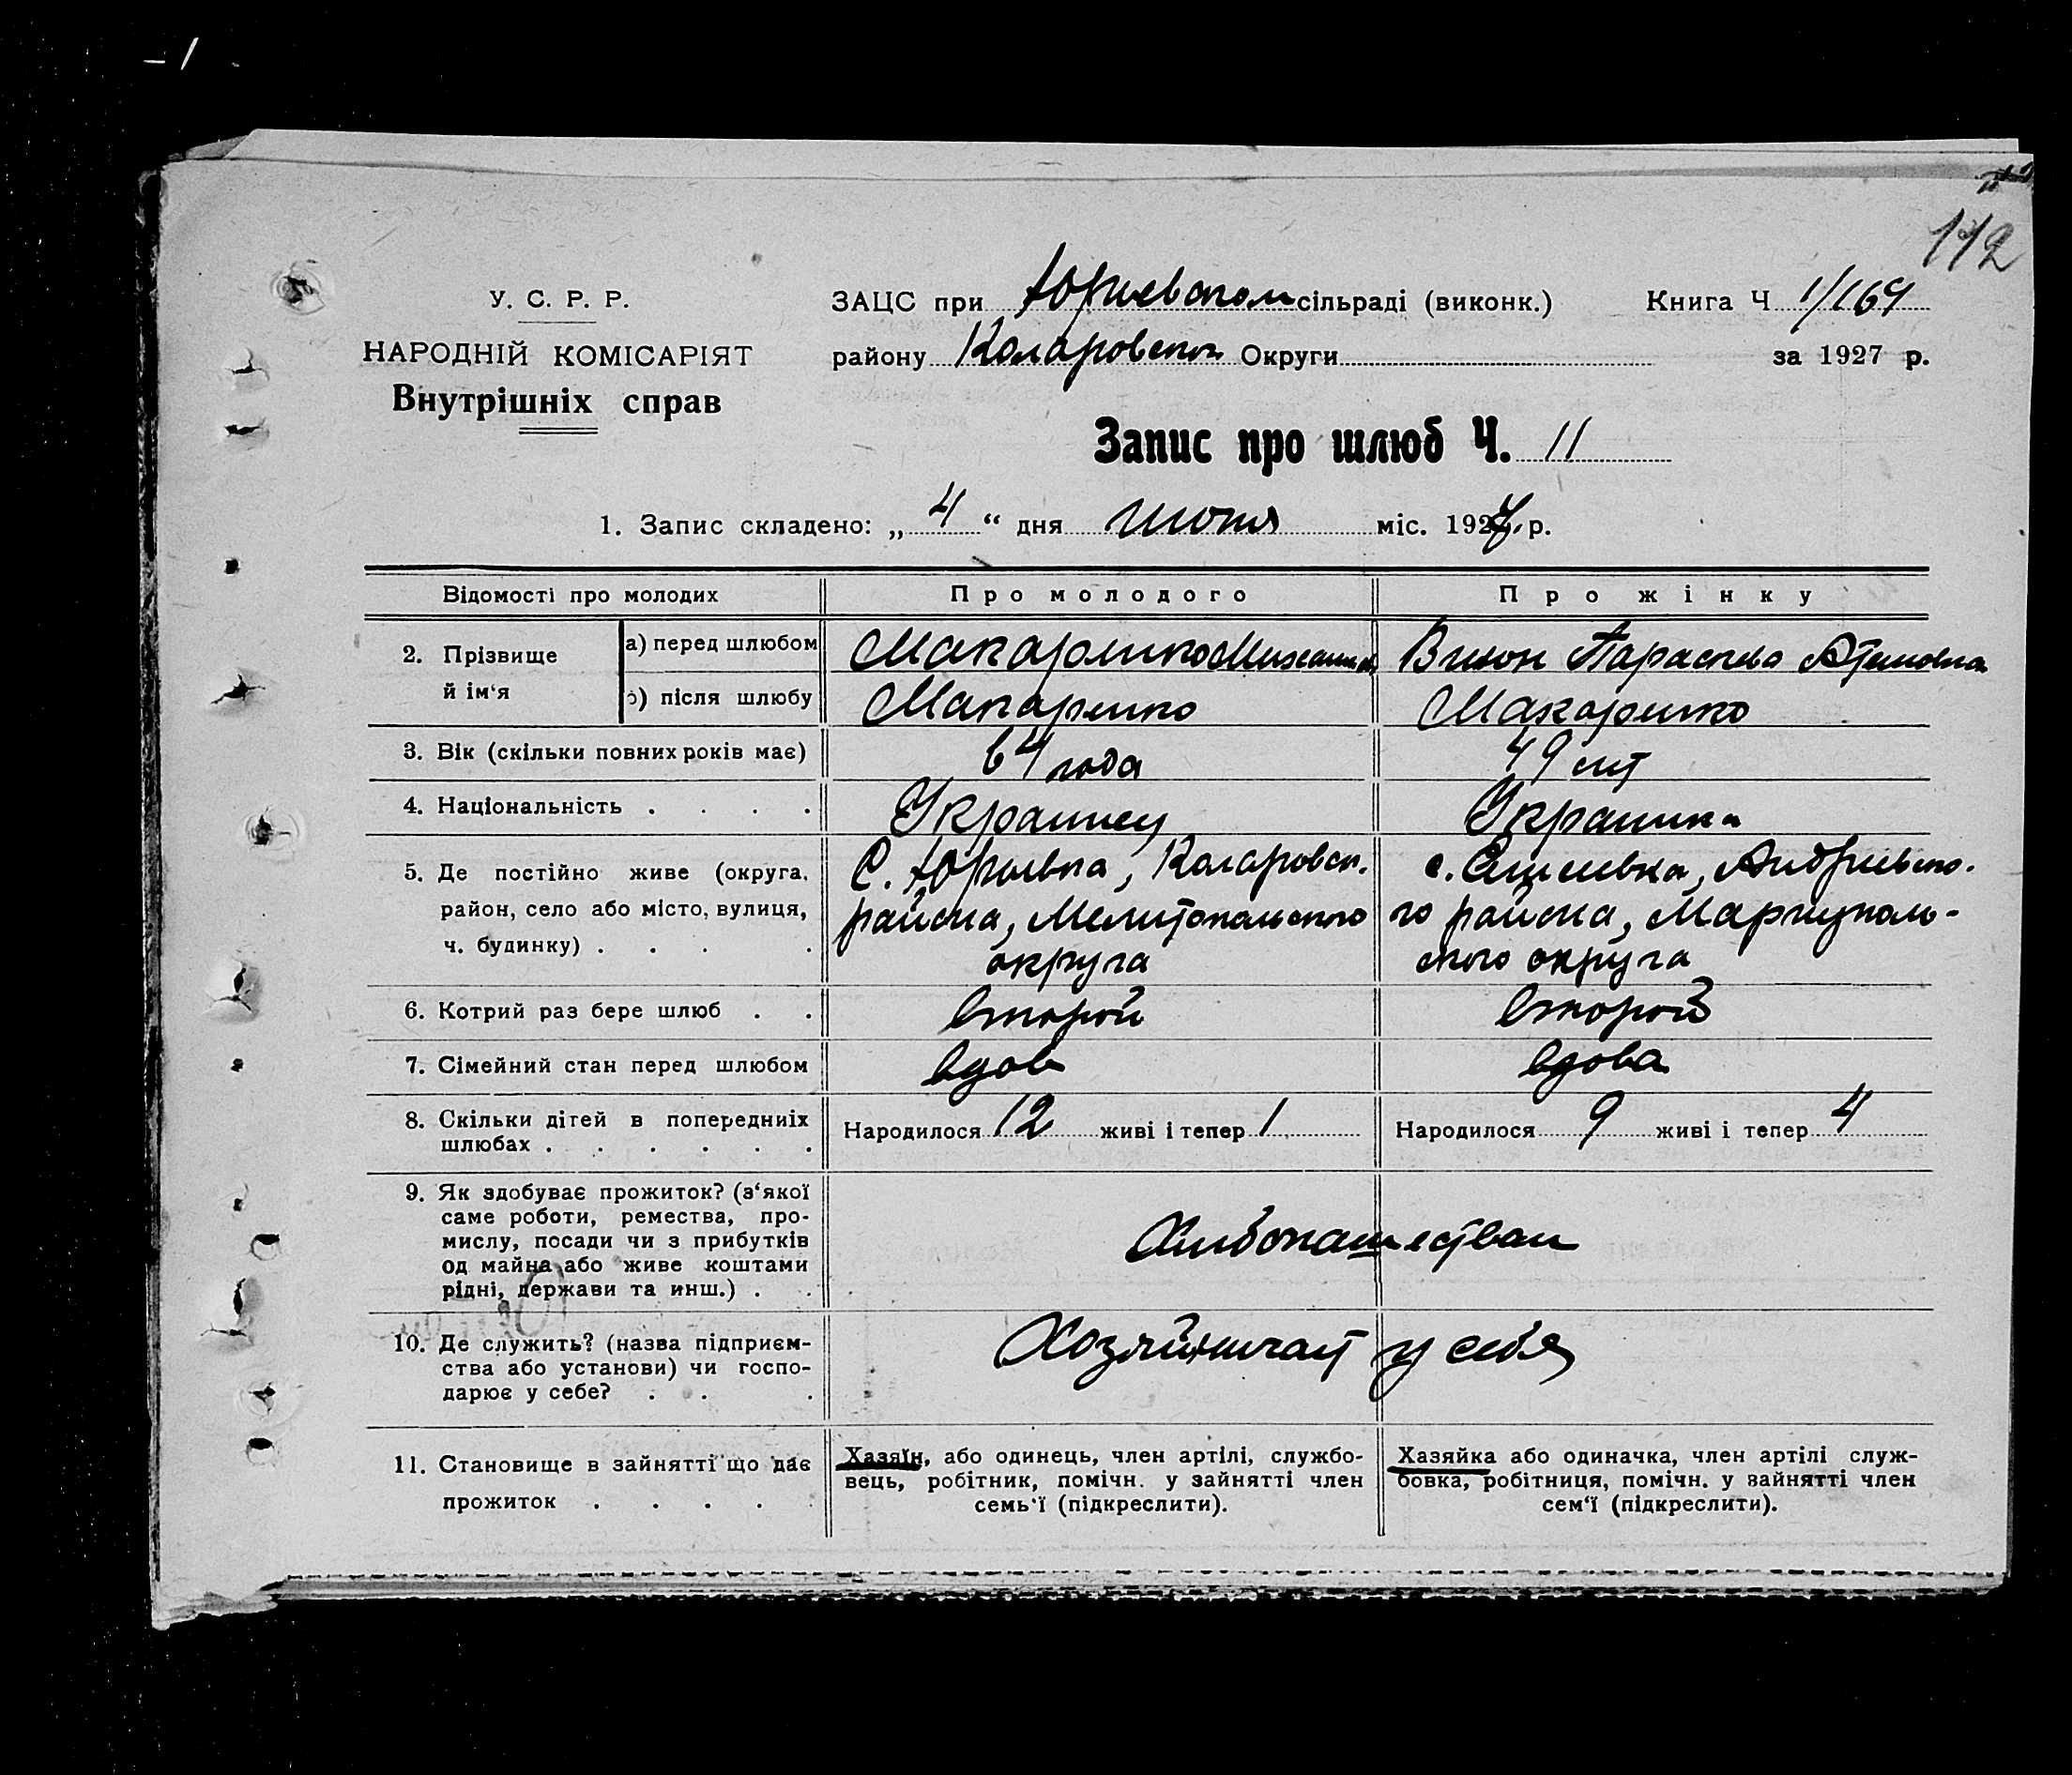 112
У. С. Р. Р.
НАРОДНІЙ КОМІСАРІЯТ
Внутрішніх справ
ЗАЦС при Юрьевском сільраді (виконк.) Книга Ч 1/164
району Коларовском Округи за 1927 р.
Запис про шлюб Ч. 11
1. Запис складено: „ 4 “ дня июня міс. 1927 р.
Відомості про молодих Про молодого Про жінку
2. Прізвище й ім‘я
а) перед шлюбом Макаренко Михаил Параскева
б) після шлюбу Макаренко Макаренко
3. Вік (скільки повних років має) 64 года 49 лет
4. Національність . . . . Украинец Украинка
5. Де постійно живе (округа,
район, село або місто, вулиця,
ч. будинку) . . . .
С. Юрьевка, Коларовск.
района, Мелитопольского
округа
с. Андриевско-
го района, Мариуполь-
ского округа
6. Котрий раз бере шлюб . . второй второй
7. Сімейний стан перед шлюбом вдов вдова
8. Скільки дітей в попередниіх
шлюбах . . . . . .
Народилося 12 живі і тепер 1 Народилося 9 живі і тепер 4
9. Як здобуває прожиток? (з‘якої
саме роботи, ремества, про-
мислу, посади чи з прибутків
од майна або живе коштами
рідні, держави та инш.) . .
Хлебопашеством
10. Де служить? (назва підприєм-
ства або установи) чи госпо-
дарює у себе? . . .
Хозяйничает у себя
11. Становище в зайнятті що дає
прожиток . . . . .
Хазяїн, або одинець, член артілі, службо-
вець, робітник, помічн. у зайнятті член
семь‘ї (підкреслити).
Хазяйка або одиначка, член артілі служ-
бовка, робітниця, помічн. у зайнятті член
сем‘ї (підкреслити).